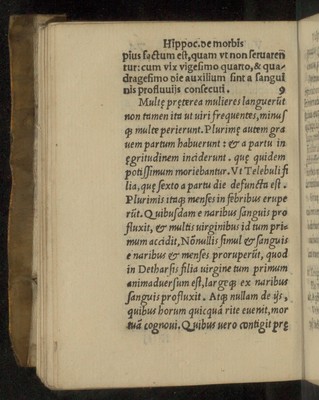 Hippoc. de morbis
pius factum est, quam vt non seruaren
tur: cum vix vigesimo quarto, & qua-
dragesimo die auxilium sint a sangui
nis profluuijs consecuti. 9
Multę pręterea mulieres languerūt
non tamen ita ut uiri frequentes, minus
q̃ multe perierunt. Plurimę autem gra
uem partum habuerunt: & a partu in
ęgritudinem inciderunt. quę quidem
potissimum moriebantur. Vt Telebuli fi
lia, quę sexto a partu die defuncta est.
Plurimis itaq; menses in febribus erupe
rūt. Quibusdam e naribus sanguis pro
fluxit, & multis uirginibus id tum pri-
mum accidit, Nōnullis simul & sanguis
e naribus & menses proruperūt, quod
in Detharsis filia uirgine tum primum
animaduersum est, largeq; ex naribus
sanguis profluxit. Atq; nullam de ijs,
quibus horum quicquā rite euenit, mor
tuā cognoui. Quibus uero contigit prę